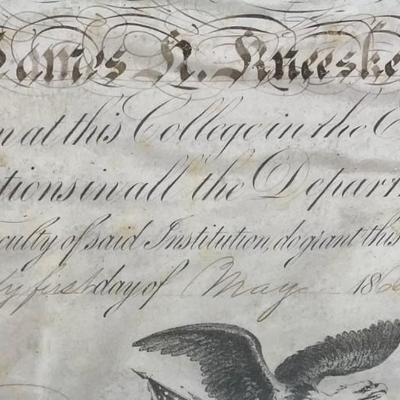 James H. Kneeske
n at this College in the C
tions in all the Departm
culty of said Institution, do grant this
ty first day of May 186